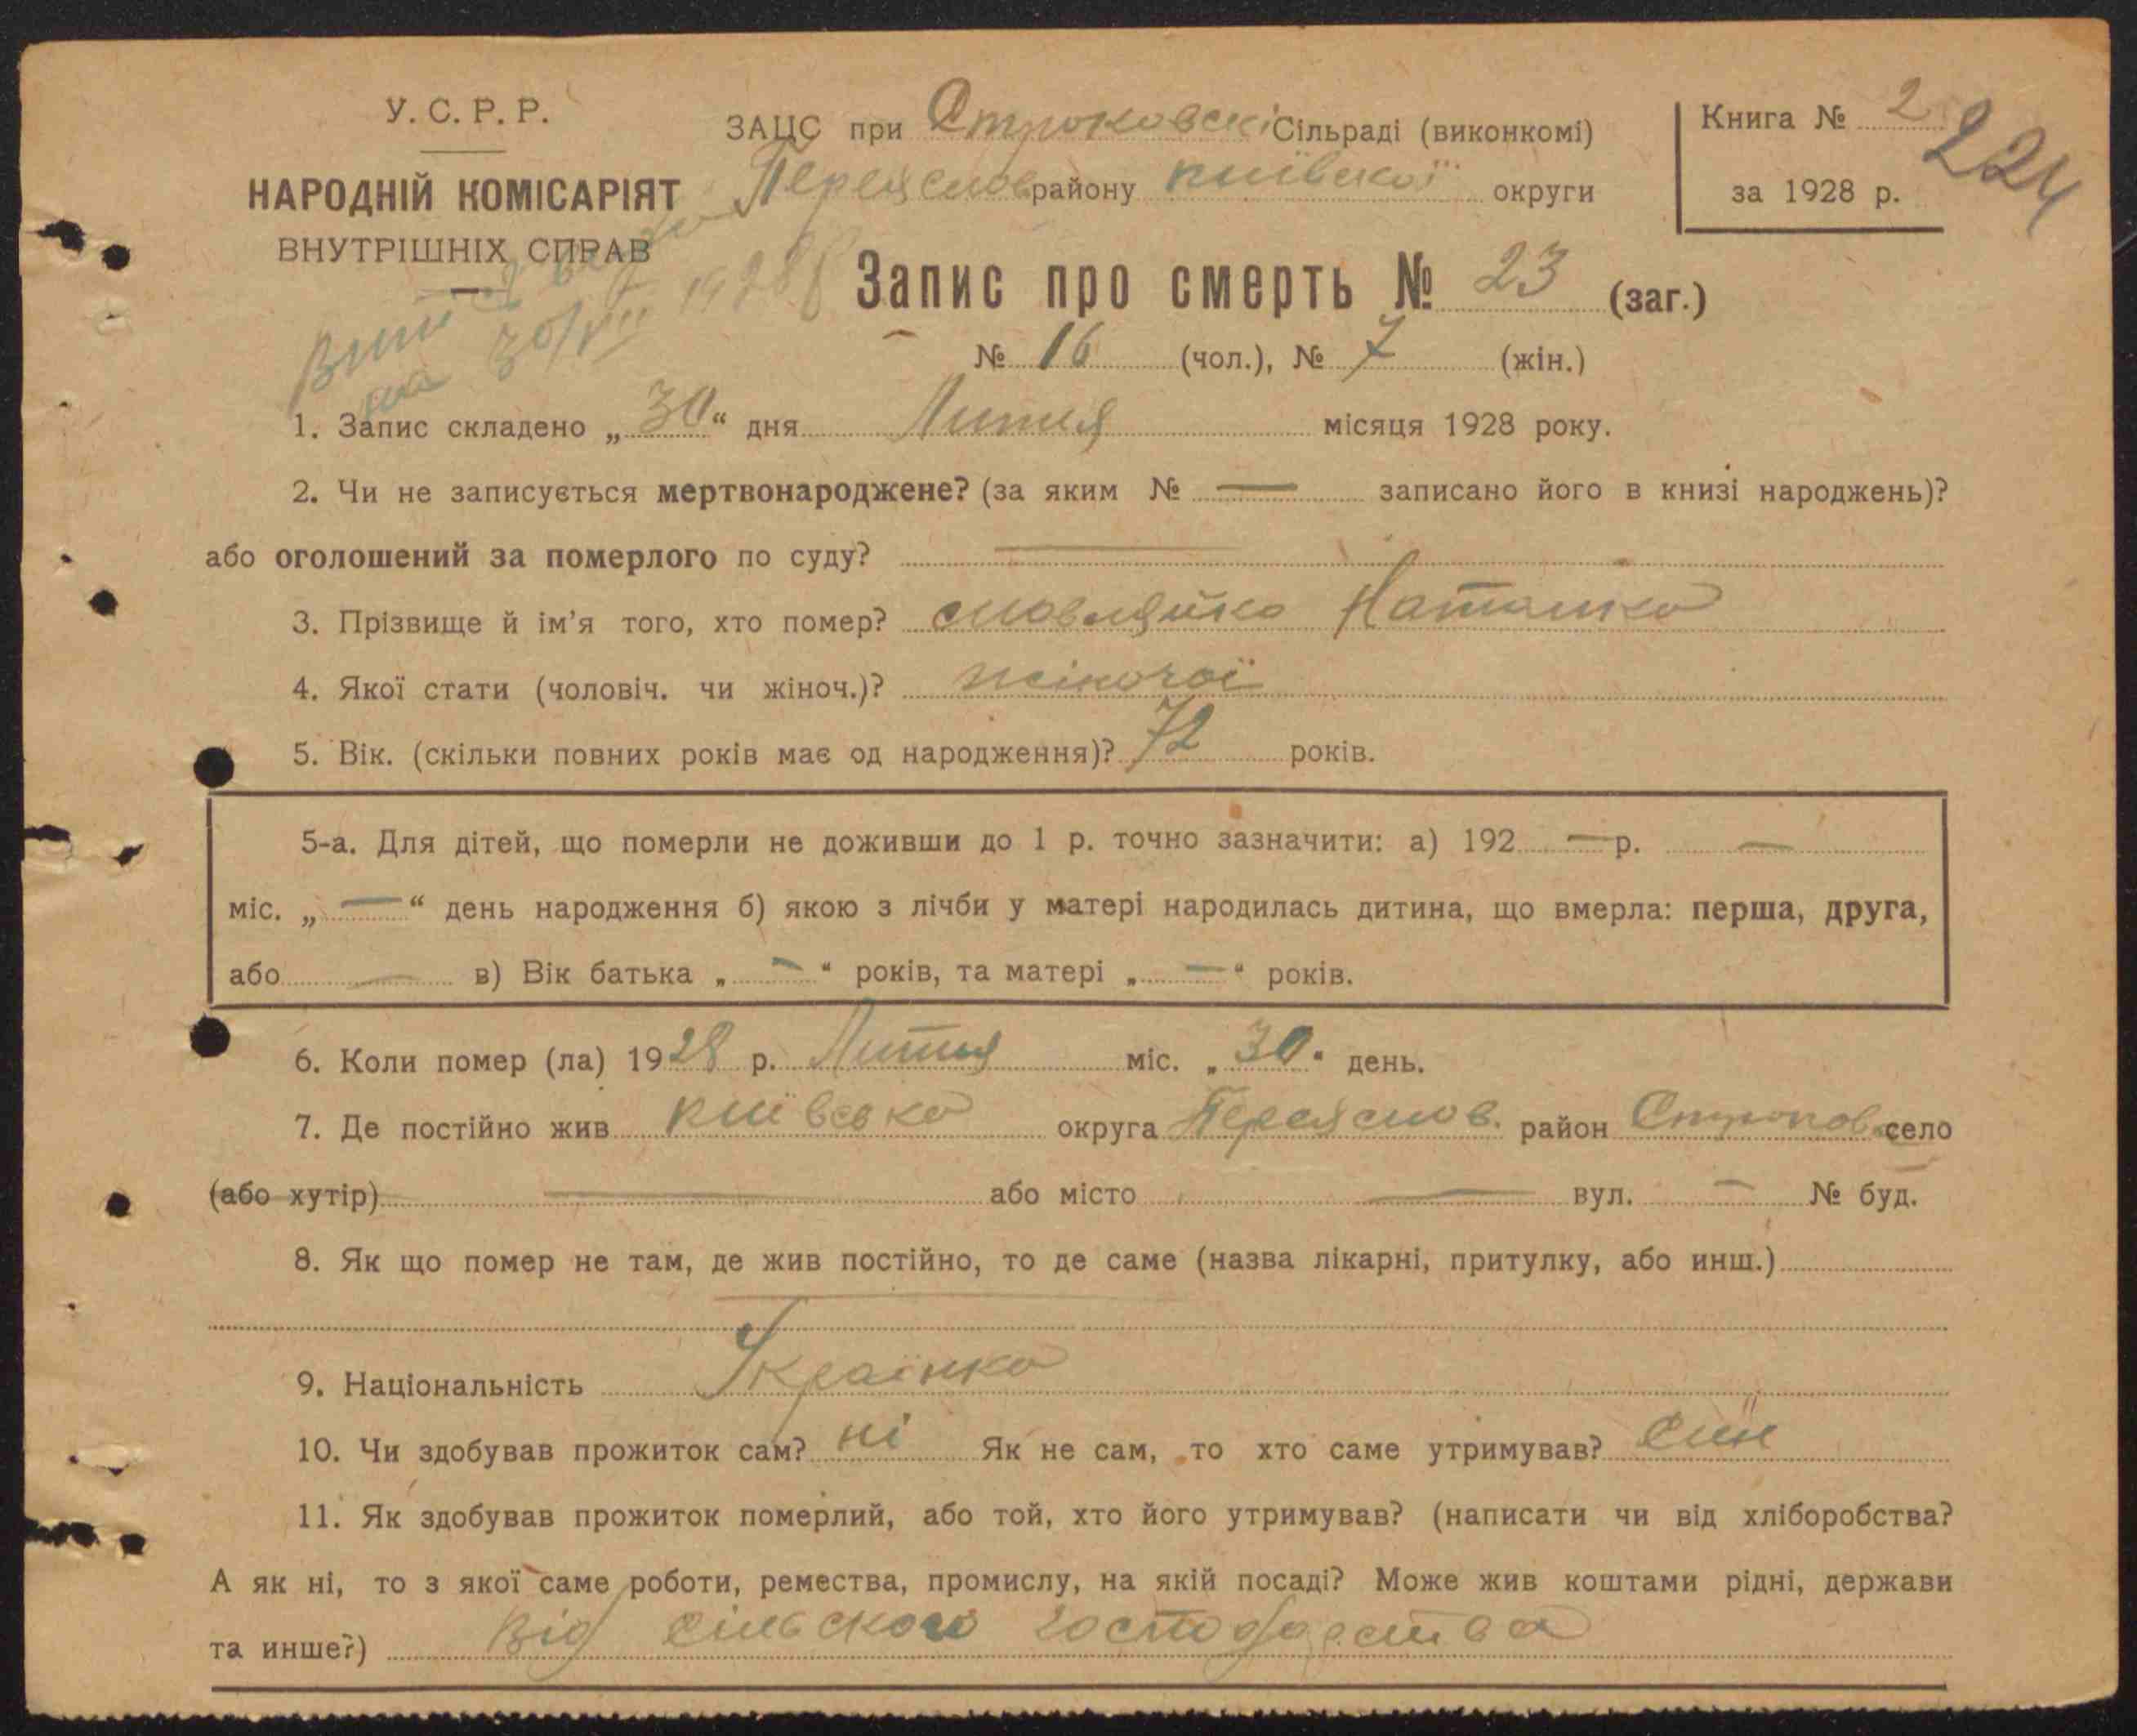 У. С. Р. Р.
НАРОДНІЙ КОМІСАРІЯТ
ВНУТРІШНІХ СПРАВ
ЗАЦС при Строковскі Сільраді (виконкомі)
Переяслов району київскої округи
Книга № 2
за 1928 р.
224
30/VII 1928
Запис про смерть № 23 (заг.)
№ 16 (чол.), № 7 (жін.)
1. Запис складено „30“ дня Липня місяця 1928 року.
2. Чи не записується мертвонароджене? (за яким № — записано його в книзі народжень)?
або оголошений за померлого по суду? —
3. Прізвище й ім'я того, хто помер? Наталка
4. Якої стати (чоловіч. чи жіноч.)? жіночої
5. Вік. (скільки повних років має од народження)? 72 років.
5-а. Для дітей, що померли не доживши до 1 р. точно зазначити: а) 192 — р. —
міс. „ — “ день народження б) якою з лічби у матері народилась дитина, що вмерла: перша, друга,
або — в) Вік батька „ — “ років, та матері „ — “ років.
6. Коли помер (ла) 1928 р. Липня міс. „30“ день.
7. Де постійно жив київсько округа Переяслов. район Строков село
(або хутір) — або місто — вул. — № буд.
8. Як що помер не там, де жив постійно, то де саме (назва лікарні, притулку, або инш.)
9. Національність Українка
10. Чи здобував прожиток сам? ні Як не сам, то хто саме утримував? син
11. Як здобував прожиток померлий, або той, хто його утримував? (написати чи від хліборобства?
А як ні, то з якої саме роботи, ремества, промислу, на якій посаді? Може жив коштами рідні, держави
та инше?) Від сільского господарства